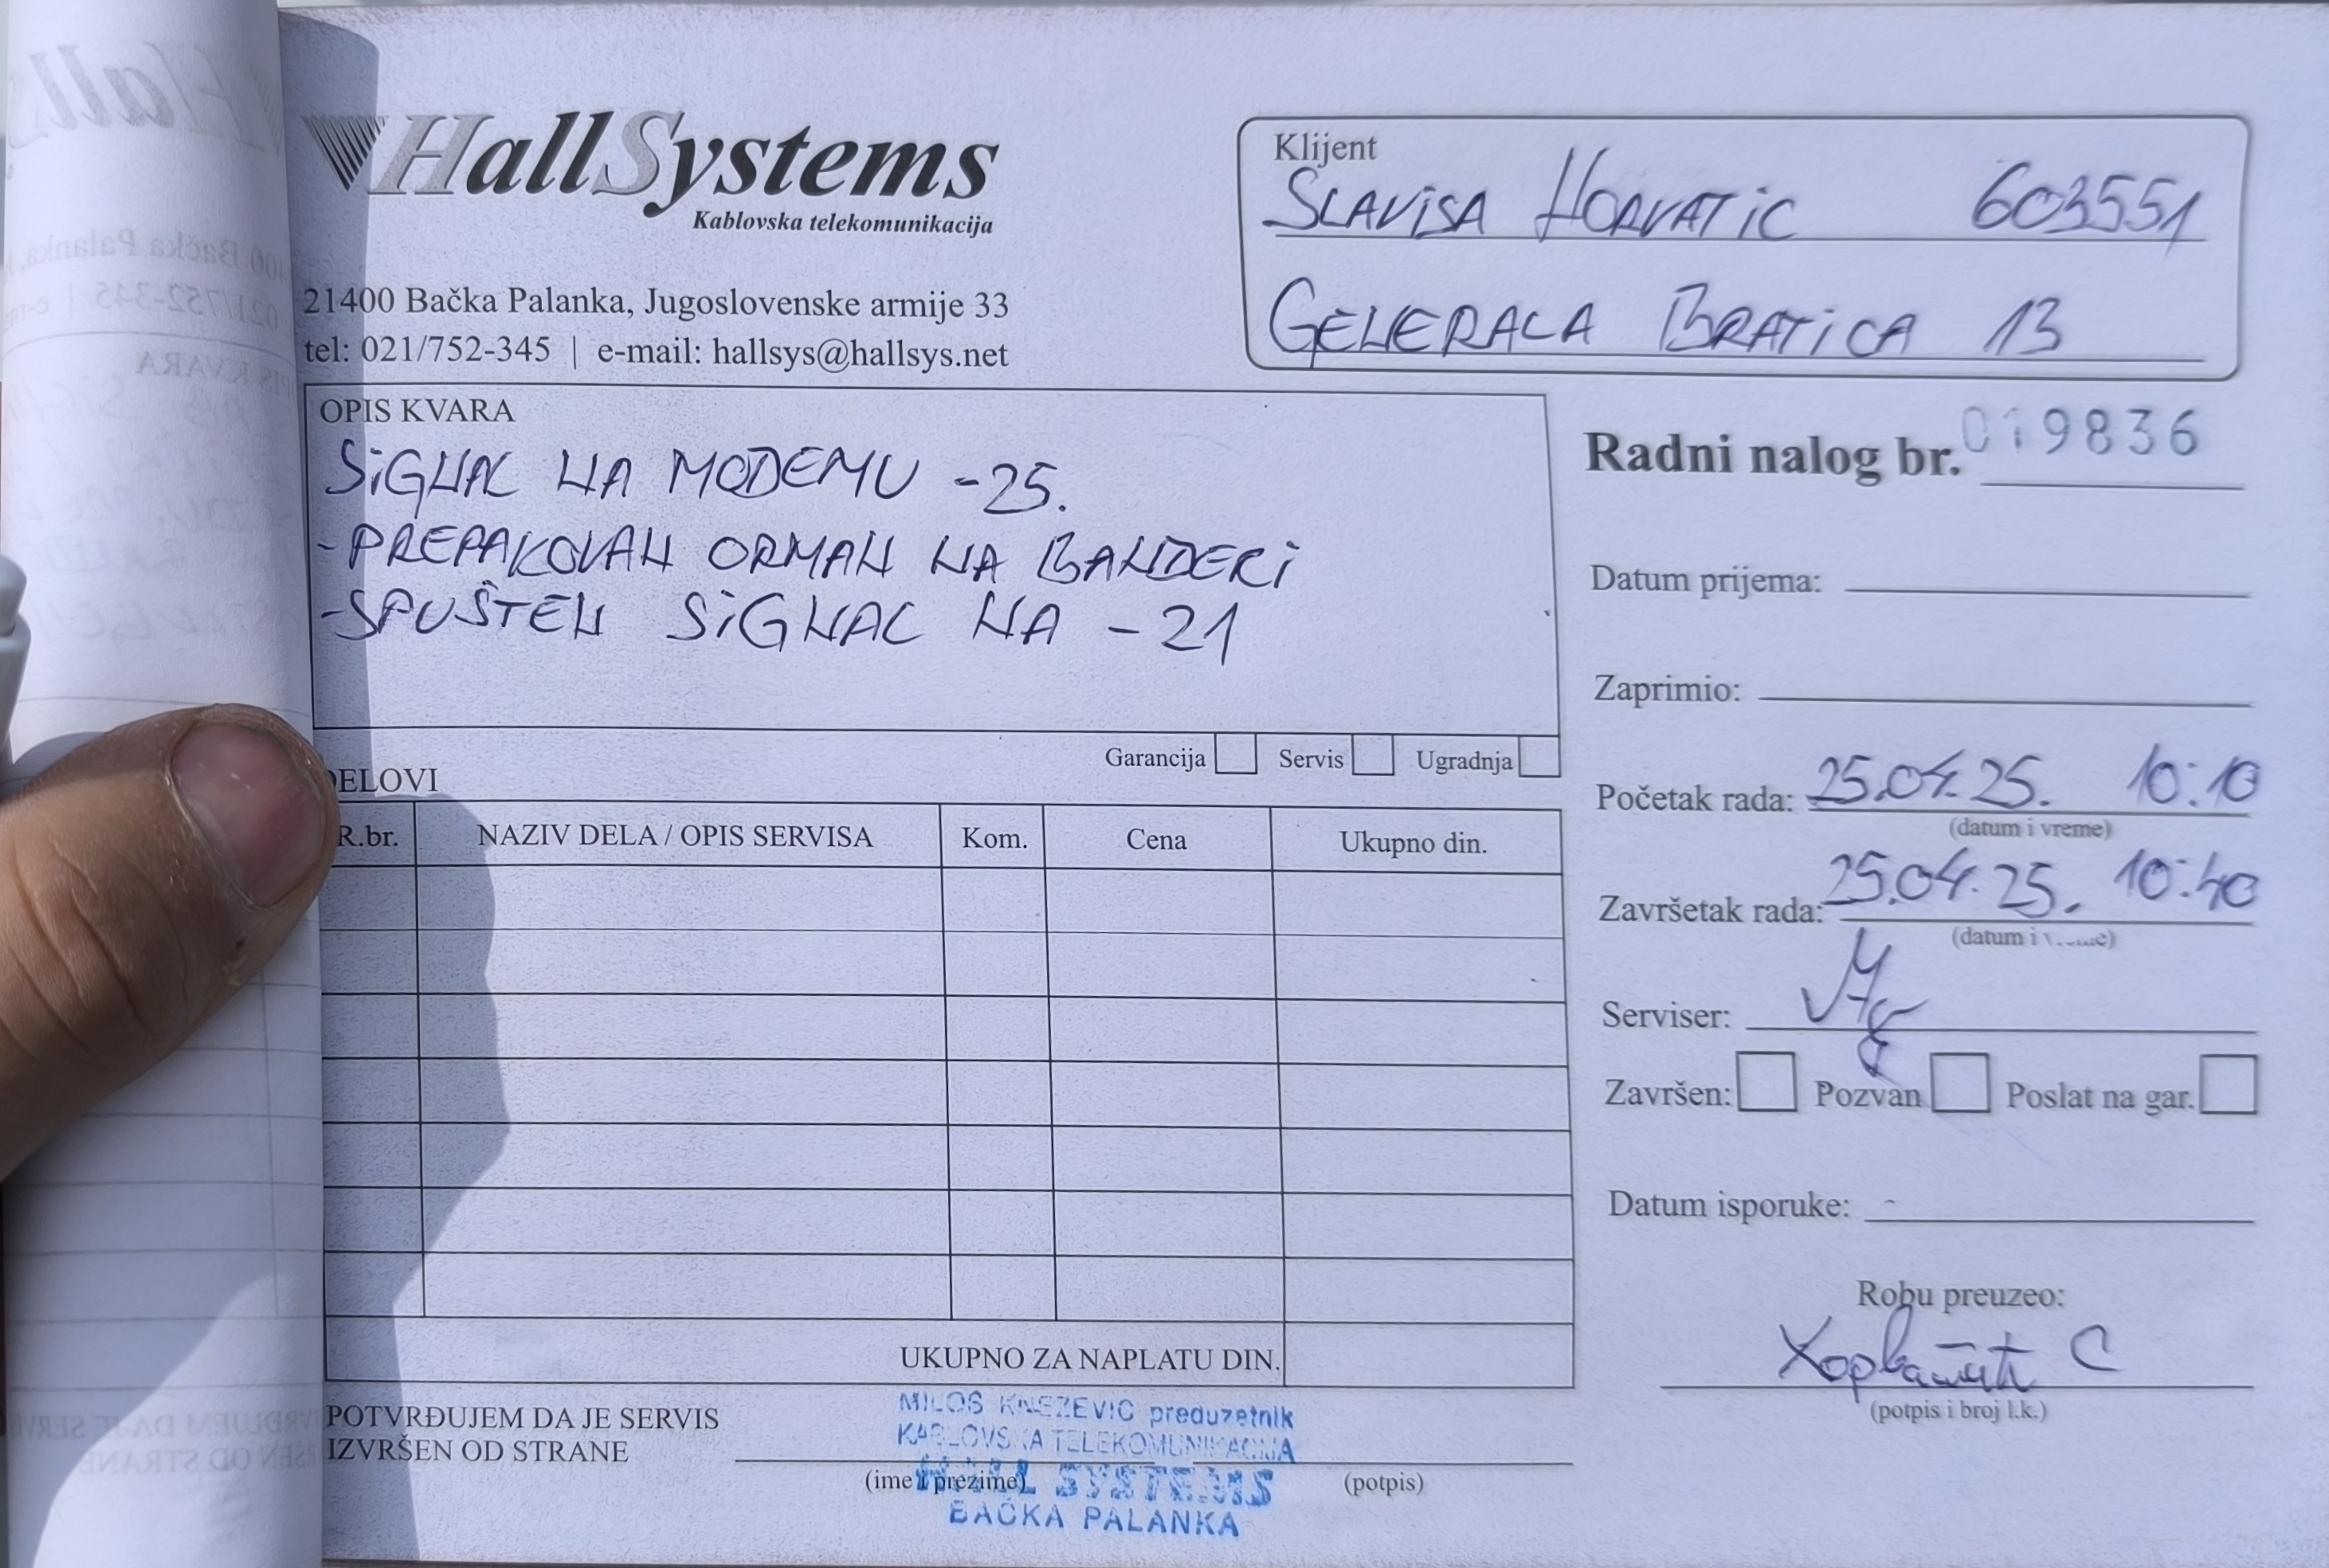 HallSystems
Kablovska telekomunikacija
21400 Bačka Palanka, Jugoslovenske armije 33
tel: 021/752-345 | e-mail: hallsys@hallsys.net
Klijent
SLAViSA HORVATiC 603551
GENERALA BRATiCA 13
OPIS KVARA
SiGNAL NA MODEMU -25.
-PREPAKOVAN ORMAN NA BANDERi
-SPUŠTEN SiGNAL NA -21
Garancija Servis Ugradnja
Radni nalog br. 019836
Datum prijema:
Zaprimio:
Početak rada: 25.04.25. 10:10
(datum i vreme)
Završetak rada: 25.04.25. 10:40
(datum i vreme)
Serviser:
Završen: Pozvan Poslat na gar.
Datum isporuke: -
Robu preuzeo:
C
(potpis i broj l.k.)
DELOVI
R.br. NAZIV DELA / OPIS SERVISA Kom. Cena Ukupno din.
UKUPNO ZA NAPLATU DIN.
POTVRĐUJEM DA JE SERVIS
IZVRŠEN OD STRANE
(ime i prezime) (potpis)
MILOS KNEZEVIC preduzetnik
KABLOVSKA TELEKOMUNIKACIJA
HALL SYSTEMS
BAČKA PALANKA